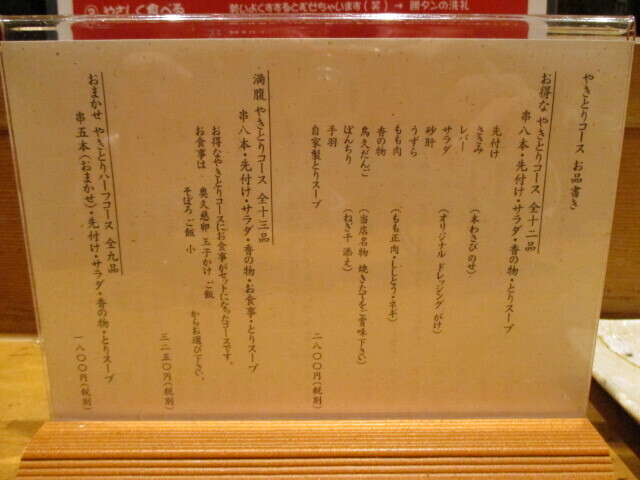 ③ やさしく食べる
勢いよくすするとむせちゃいます(笑) → 勝タンの洗礼
やきとりコース お品書き
お得な やきとりコース 全十二品
串八本・先付け・サラダ・香の物・とりスープ
先付け
ささみ (本わさび のせ)
レバー
サラダ (オリジナル ドレッシング がけ)
砂肝
うずら
もも肉 (もも正肉・ししとう・ネギ)
香の物
鳥久だんご (当店名物 焼きたてをご賞味下さい)
ぼんちり (ねぎ干 添え)
手羽
自家製とりスープ
二八〇〇円(税別)
満腹 やきとりコース 全十三品
串八本・先付け・サラダ・香の物・お食事・とりスープ
お得なやきとりコースにお食事がセットになったコースです。
お食事は 奥久慈卵 玉子かけ ご飯
そぼろ ご飯 小 からお選び下さい。
三二五〇円(税別)
おまかせ やきとりハーフコース 全九品
串五本(おまかせ)・先付け・サラダ・香の物・とりスープ
一八〇〇円(税別)